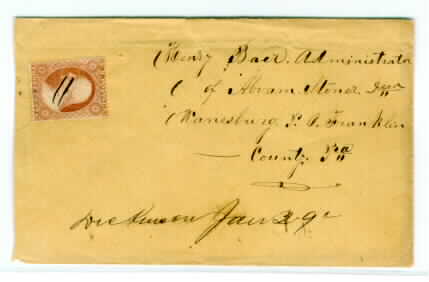 Henry Baer. Administrator
of Abram Stoner Decn
Wanesburg P. O. Franklin
County Pa
Dickinson Jan 29